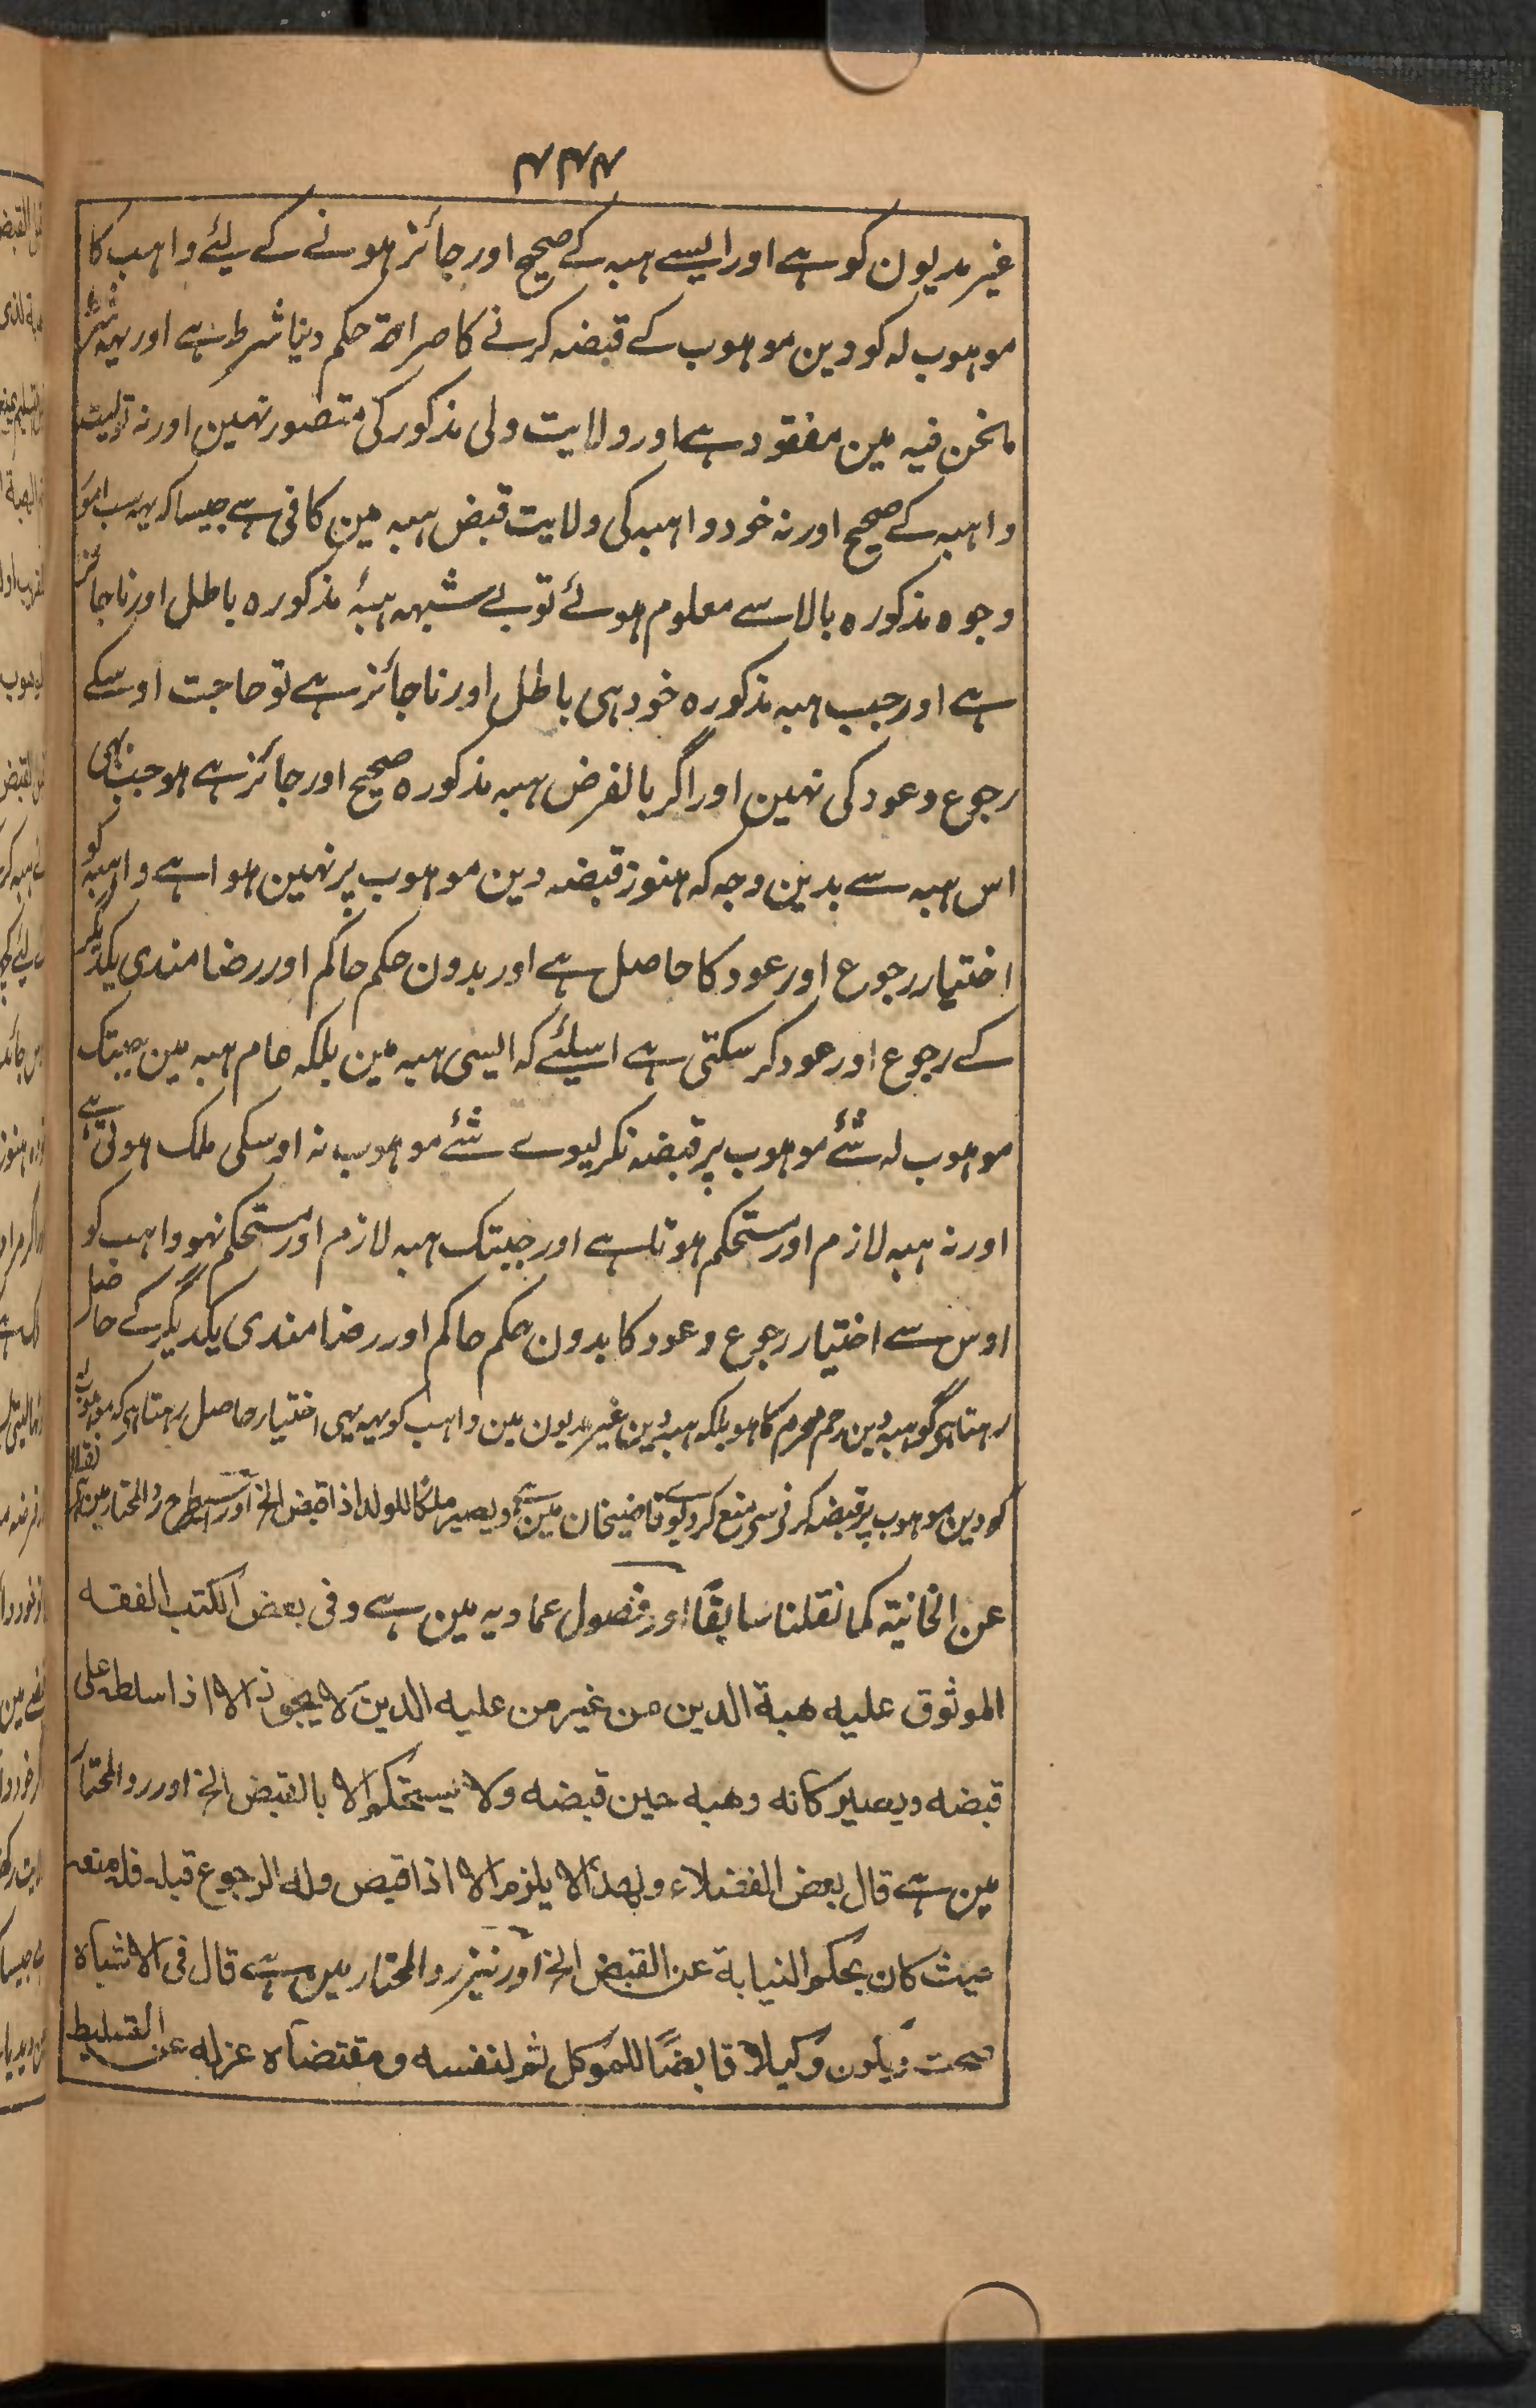 ۴۴۴
غیر مدیون کو ہے اور ایسے ہبہ کے صحیح اور جائز ہونے کے لیئے واہب کا
موہوب لہ کو دین موہوب کے قبضہ کرنے کا صراحۃ حکم دینا شرط ہے اور یہہ شرط
مانحن فیہ مین مفقود ہے اور ولایت ولی مذکور کی متصور نہین اور نہ تولیت
واہبہ کے صحیح اور نہ خود واہبہ کی ولایت قبض ہبہ مین کافی ہے جیسا کہ یہہ سب امور
وجوہ مذکورہ بالا سے معلوم ہوئے تو بے شبہہ ہبۂ مذکورہ باطل اور ناجائز
ہے اور جب ہبہ مذکورہ خود ہی باطل اور ناجائز ہے تو حاجت اوسکے
رجوع وعود کی نہین اور اگر بالفرض ہبہ مذکورہ صحیح اور جائز ہے ہو جب بہی
اس ہبہ سے بدین وجہ کہ ہنوز قبضہ دین موہوب پر نہین ہوا ہے واہبہ کو
اختیار رجوع اور عود کا حاصل ہے اور بدون حکم حاکم اور رضامندی یکدیگر
کے رجوع اور عود کر سکتی ہے اسلیئے کہ ایسی ہبہ مین بلکہ عام ہبہ مین جبتک
موہوب لہ شئے موہوب پر قبضہ نکر لیوے شئے موہوب نہ اوسکی ملک ہوتی ہے
اور نہ ہبہ لازم اور مستحکم ہوتا ہے اور جبتک ہبہ لازم اور مستحکم نہو واہب کو
اوس سے اختیار رجوع وعود کا بدون حکم حاکم اور رضامندی یکدیگر کے حاصل
رہتا ہی گو ہبہ دین رحم محرم کا ہو بلکہ ہبہ دین غیر مدیون مین واہب کو یہہ بہی اختیار حاصل رہتا ہی کہ موہوب لہ
کو دین موہوب پر قبضہ کرنی سی منع کر دیوے قاضیخان مین ہے ویصیر ملکا للولد اذا قبض الخ اور اسیطرح رد المحتار مین ہے نقلا
عن الخانیۃ کما نقلنا سابقًا اور فصول عمادیہ مین ہے وفی بعض الکتب الفقہ
الموثوق علیہ ھبۃ الدین من غیر من علیہ الدین لا یجوز الا اذا سلطہ علی
قبضہ ویصیر کانہ وھبہ حین قبضہ ولا یستحکم الا بالقبض الخ اور رد المحتار
مین ہے قال بعض الفضلاء ولھذا لا یلزم الا اذا قبض ولہ الرجوع قبلہ فلہ منعہ
حیث کان بحکم النیابۃ عن القبض الخ اور نیز رد المحتار مین ہے قال فی الاشباہ
صحت ویکون وکیلا قابضًا للموکل ثم لنفسہ ومقتضاہ عزلہ عن التسلیط